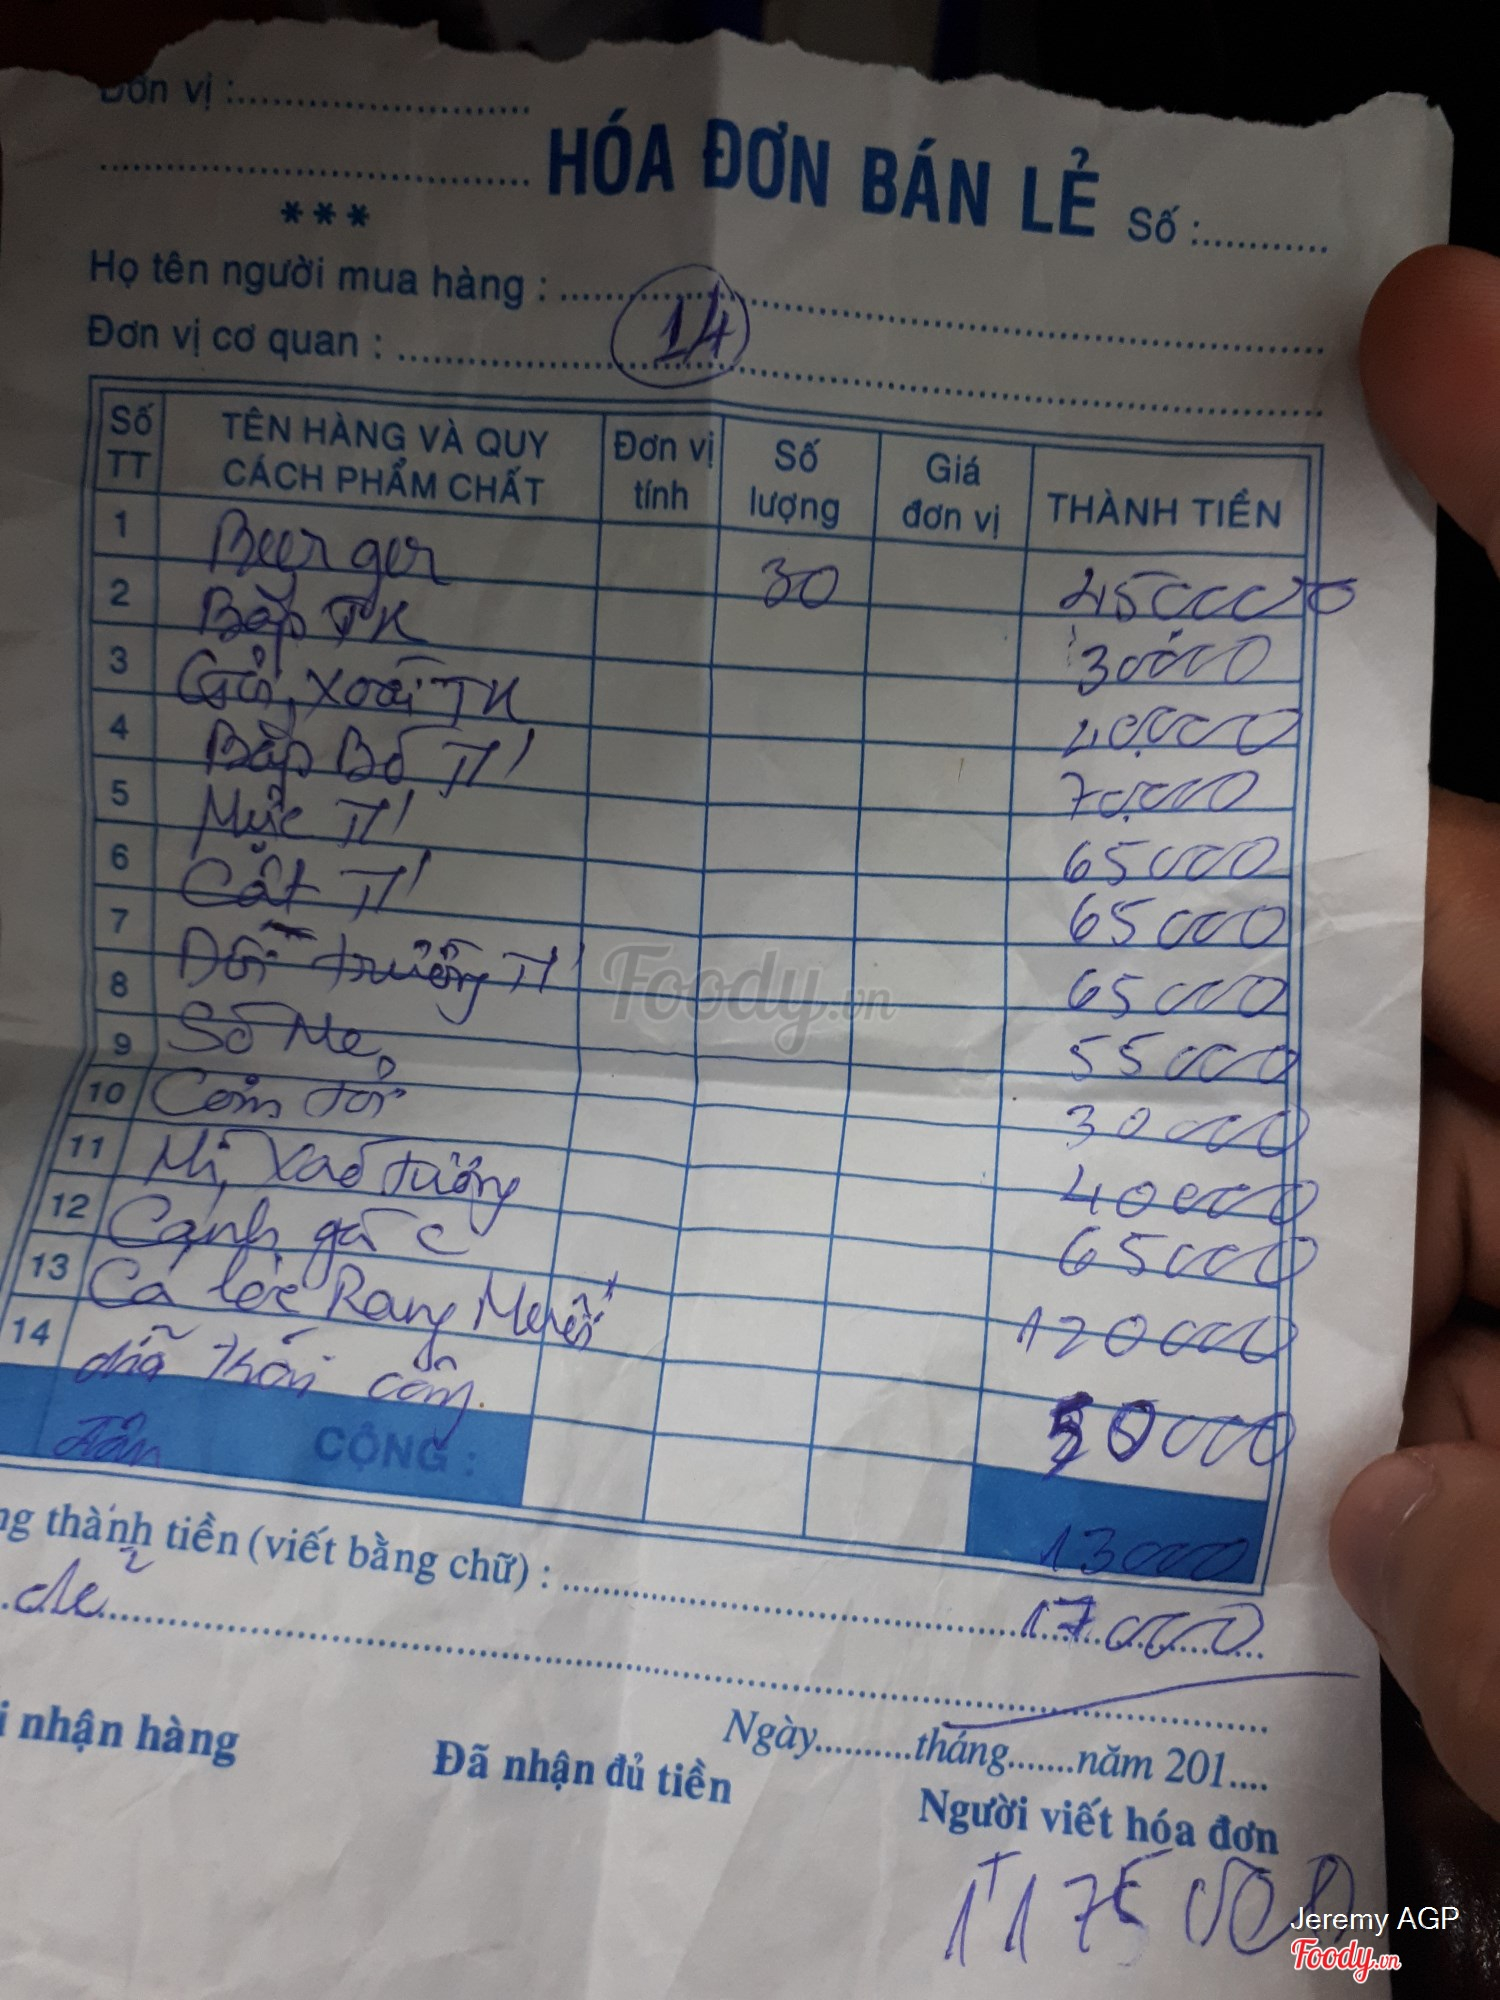 Đơn vị :
HÓA ĐƠN BÁN LẺ Số :
***
Họ tên người mua hàng :
Đơn vị cơ quan :
14
Số TT TÊN HÀNG VÀ QUY CÁCH PHẨM CHẤT Đơn vị tính Số lượng Giá đơn vị THÀNH TIỀN
1 Beerger 30 450000
2 Bắp TK 30000
3 Gỏi Xoài TK 40.000
4 Bắp Bò 70.000
5 Mực 65000
6 65000
7 trường 65000
8 Sò Mẹo 55000
9 Cơm tỏi 30000
10 Mì Xào tưởng 40000
11 Cánh gà C 65000
12 Cá lóc Rang Muối 120000
13 đĩa Thơm 50000
14
CỘNG : 13000
ng thành tiền (viết bằng chữ) :
17000
Ngày tháng năm 201
i nhận hàng Đã nhận đủ tiền Người viết hóa đơn
1175000
Foody.vn
Jeremy AGP
Foody.vn